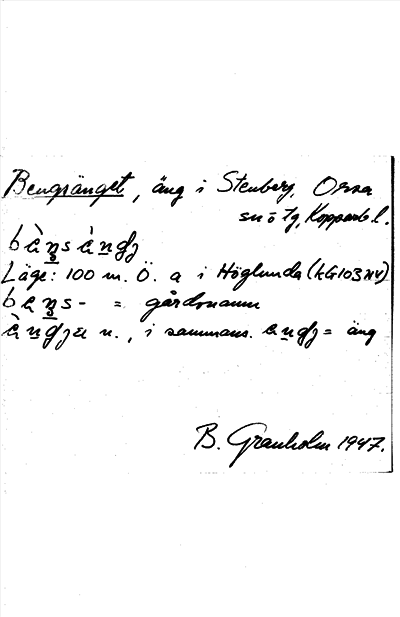 Bengsänget, äng i Stenberg, Orsa
sn o tg, Kopparb l.
Läge: 100 m. Ö. a i Höglunda (kG103NV)
= gårdsnamn
n., i sammans. = äng
B. Granholm 1947.